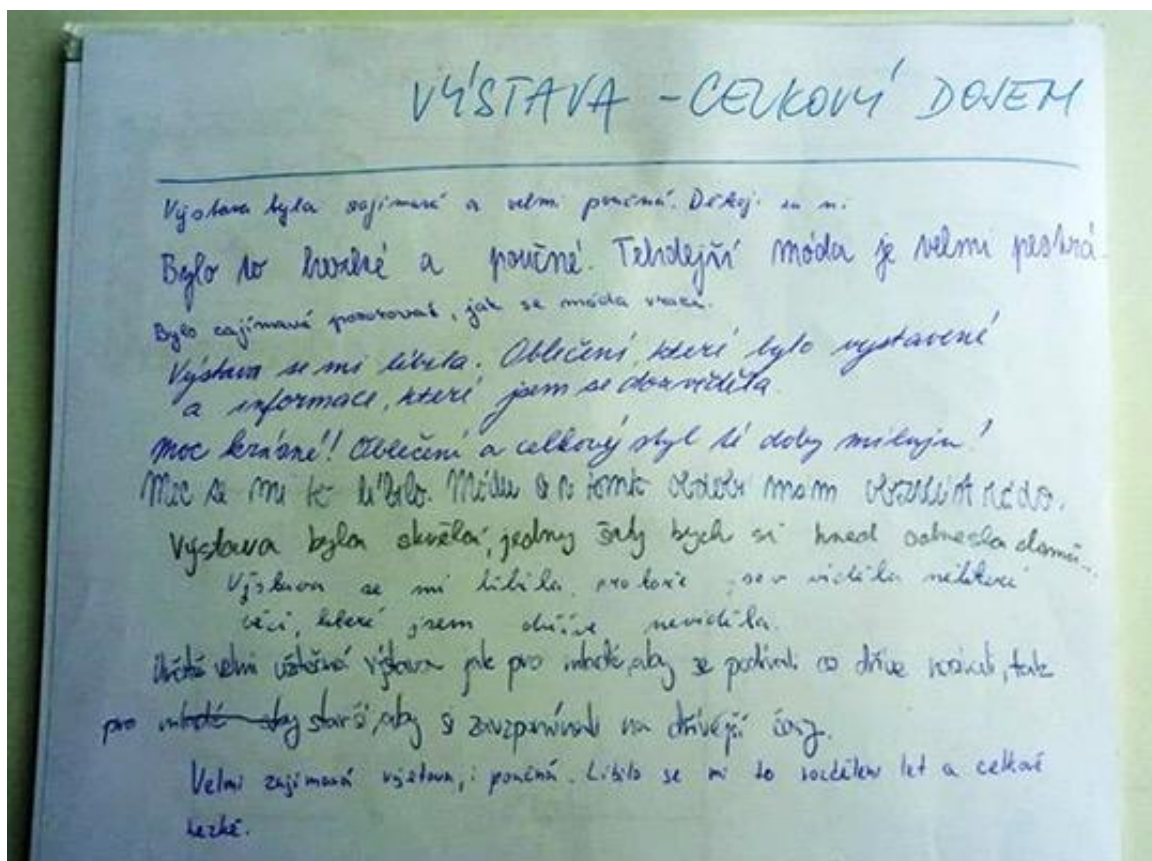 VÝSTAVA - CELKOVÝ DOJEM
Výstava byla zajímavá a velmi poučná. Děkuji za ni.
Bylo to hezké a poučné. Tehdejší móda je velmi pestrá.
Bylo zajímavé pozorovat, jak se móda vrací.
Výstava se mi líbila. Oblečení, které bylo vystavené
a informace, které jsem se dozvěděla.
Moc krásné! Oblečení a celkový styl té doby miluju!
Moc se mi to líbilo. Módu v tomto období mám rádo.
Výstava byla skvělá, jedny šaty bych si hned odnesla domů...
Výstava se mi líbila, protože jsem viděla některé
věci, které jsem dříve neviděla.
Určitě velmi užitečná výstava jak pro mladé, aby se podívali co dříve nosili, tak
pro starší, aby si zavzpomínali na dřívější časy.
Velmi zajímavá výstava, i poučná. Líbilo se mi to rozdělení let a celkově
hezké.